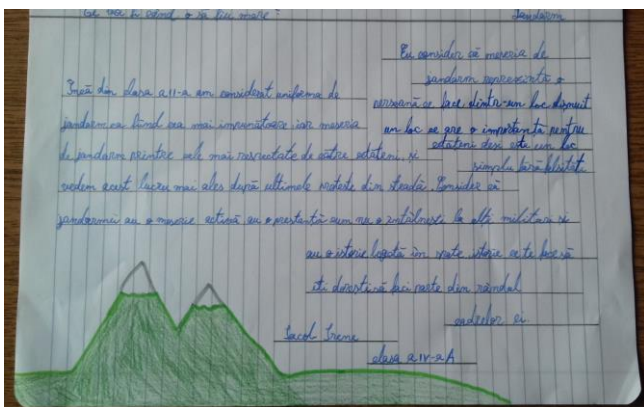 Ce voi fi când o să fiu mare? Jandarm
Eu consider că meseria de
jandarm reprezintă o
persoană ce face dintr-un loc
un loc ce are o importanță pentru
cetățeni deși este un loc
simplu
Încă din clasa a II-a am considerat uniforma de
jandarm ca fiind cea mai impunătoare iar meseria
de jandarm printre cele mai respectate de către cetățeni, și
vedem acest lucru mai ales după ultimele proteste din stradă. Consider că
jandarmii au o meserie activă au o prestanță cum nu o întâlnești la alți militari și
au o istorie bogată în spate istorie ce te face să
iți dorești să faci parte din rândul
cadrelor ei.
Iacol Irene
clasa a IV-a A